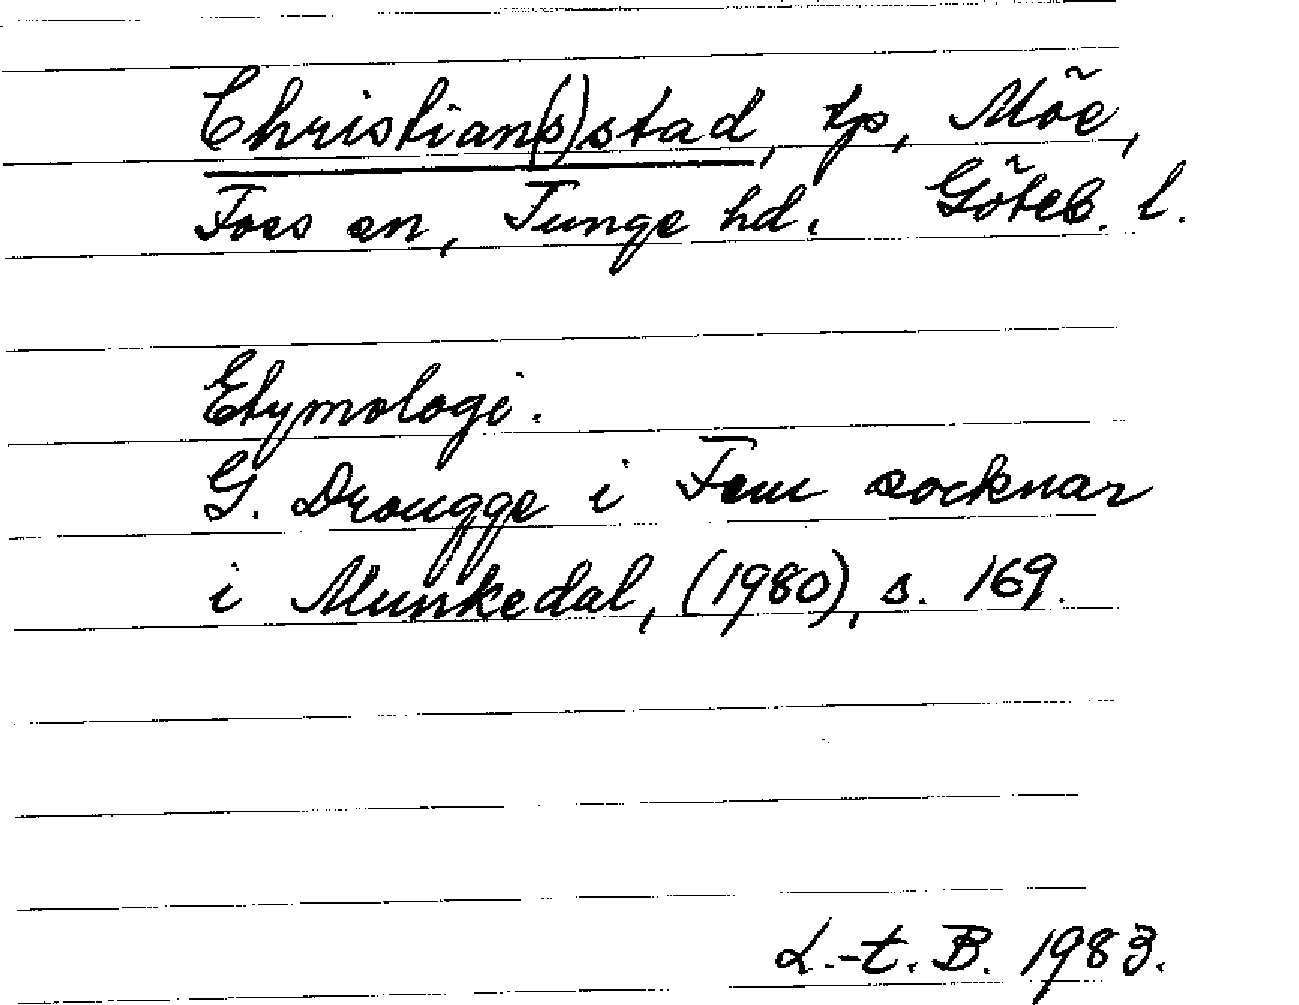 Christian(s)stad, tp, Möe,
Foss sn, Tunge hd. Göteb. l.
Etymologi.
G. Drougge i Fem socknar
i Munkedal, (1980), s. 169.
L.-t. B. 1983.